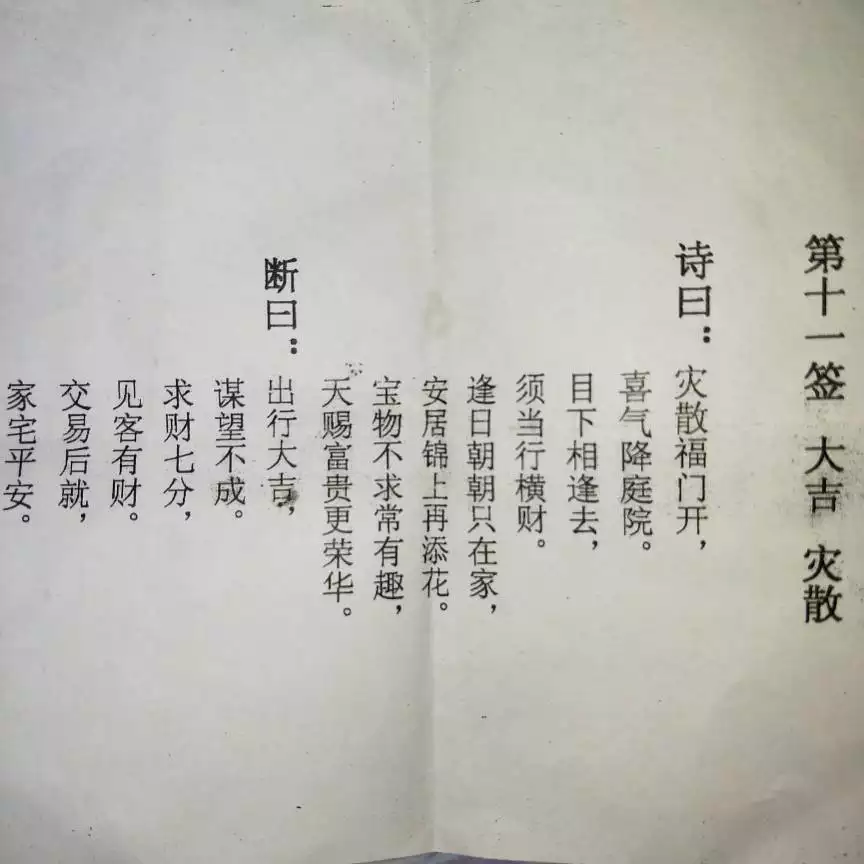 第十一签 大吉 灾散
诗曰：灾散福门开，
喜气降庭院。
目下相逢去，
须当行横财。
逢日朝朝只在家，
安居锦上再添花。
宝物不求常有趣，
天赐富贵更荣华。
断曰：出行大吉，
谋望不成。
求财七分，
见客有财。
交易后就，
家宅平安。